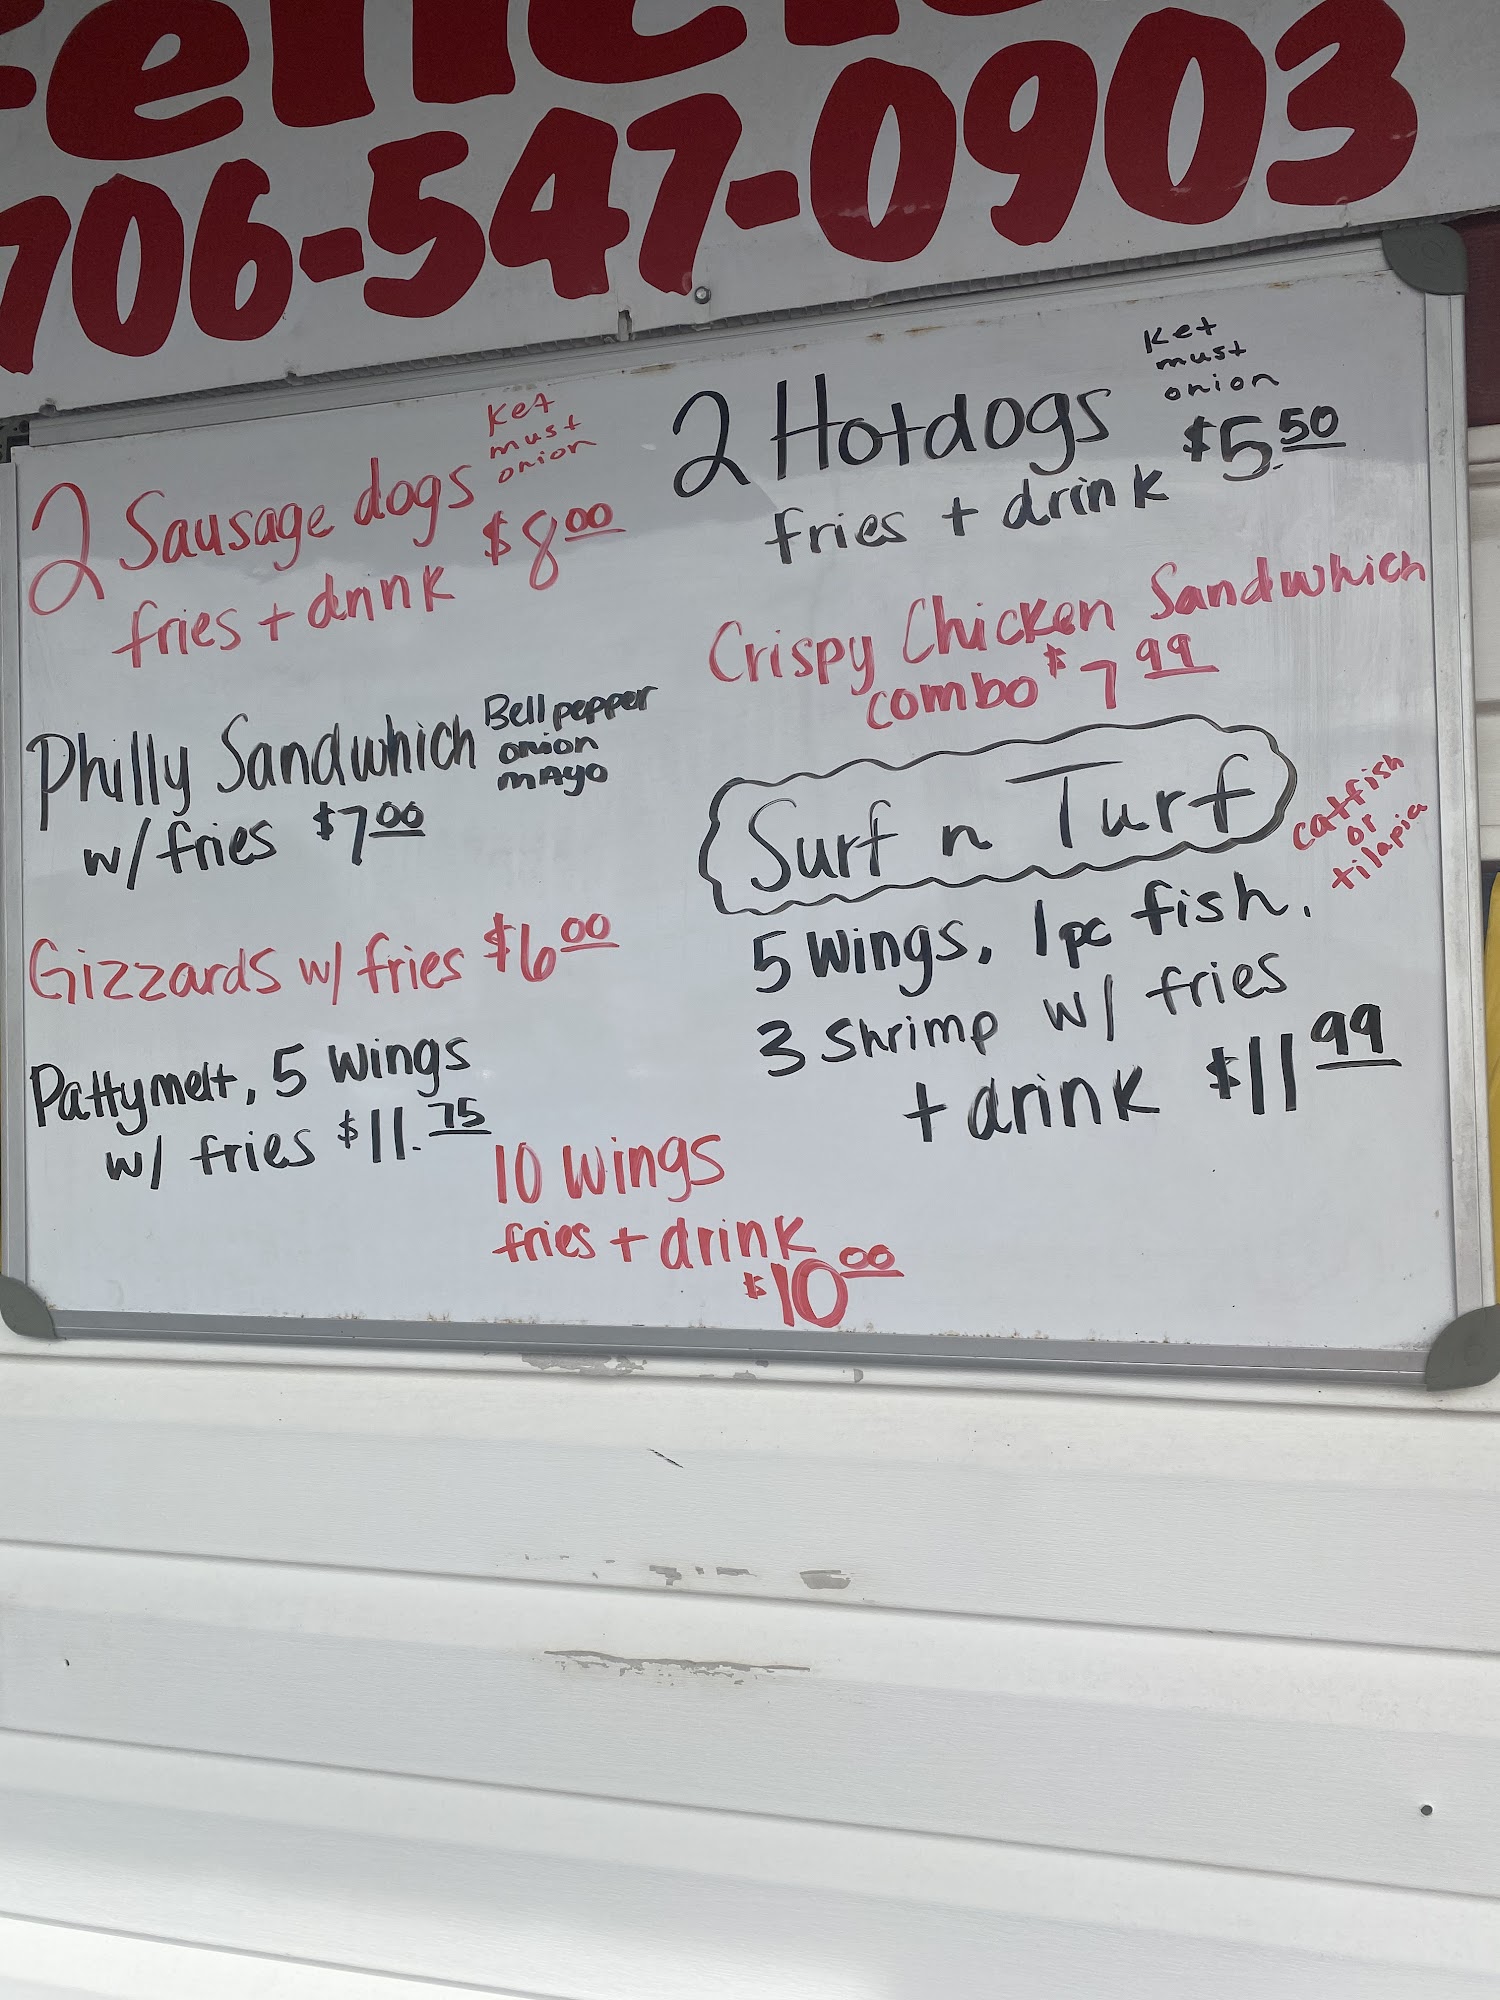 706-547-0903
2 Sausage dogs
Ket
must
onion
fries + drink $8.00
2 Hotdogs
Ket
must
onion
fries + drink $5.50
Crispy Chicken Sandwhich
combo $7.99
Philly Sandwhich
Bell pepper
onion
mayo
w/ fries $7.00
Gizzards w/ fries $6.00
Pattymelt, 5 wings
w/ fries $11.75
Surf n Turf
catfish
or
tilapia
5 wings, 1 pc fish,
3 Shrimp w/ fries
+ drink $11.99
10 wings
fries + drink
$10.00